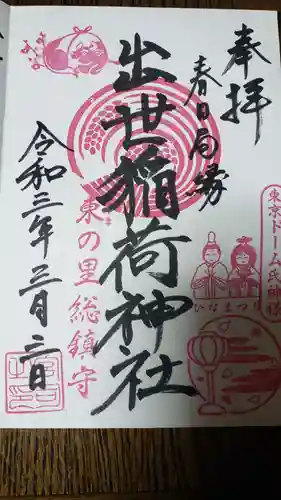 奉拝
春日局縁
東京ドーム氏神様
出世稲荷神社
ひなまつり
東の里総鎮守
令和三年三月二日